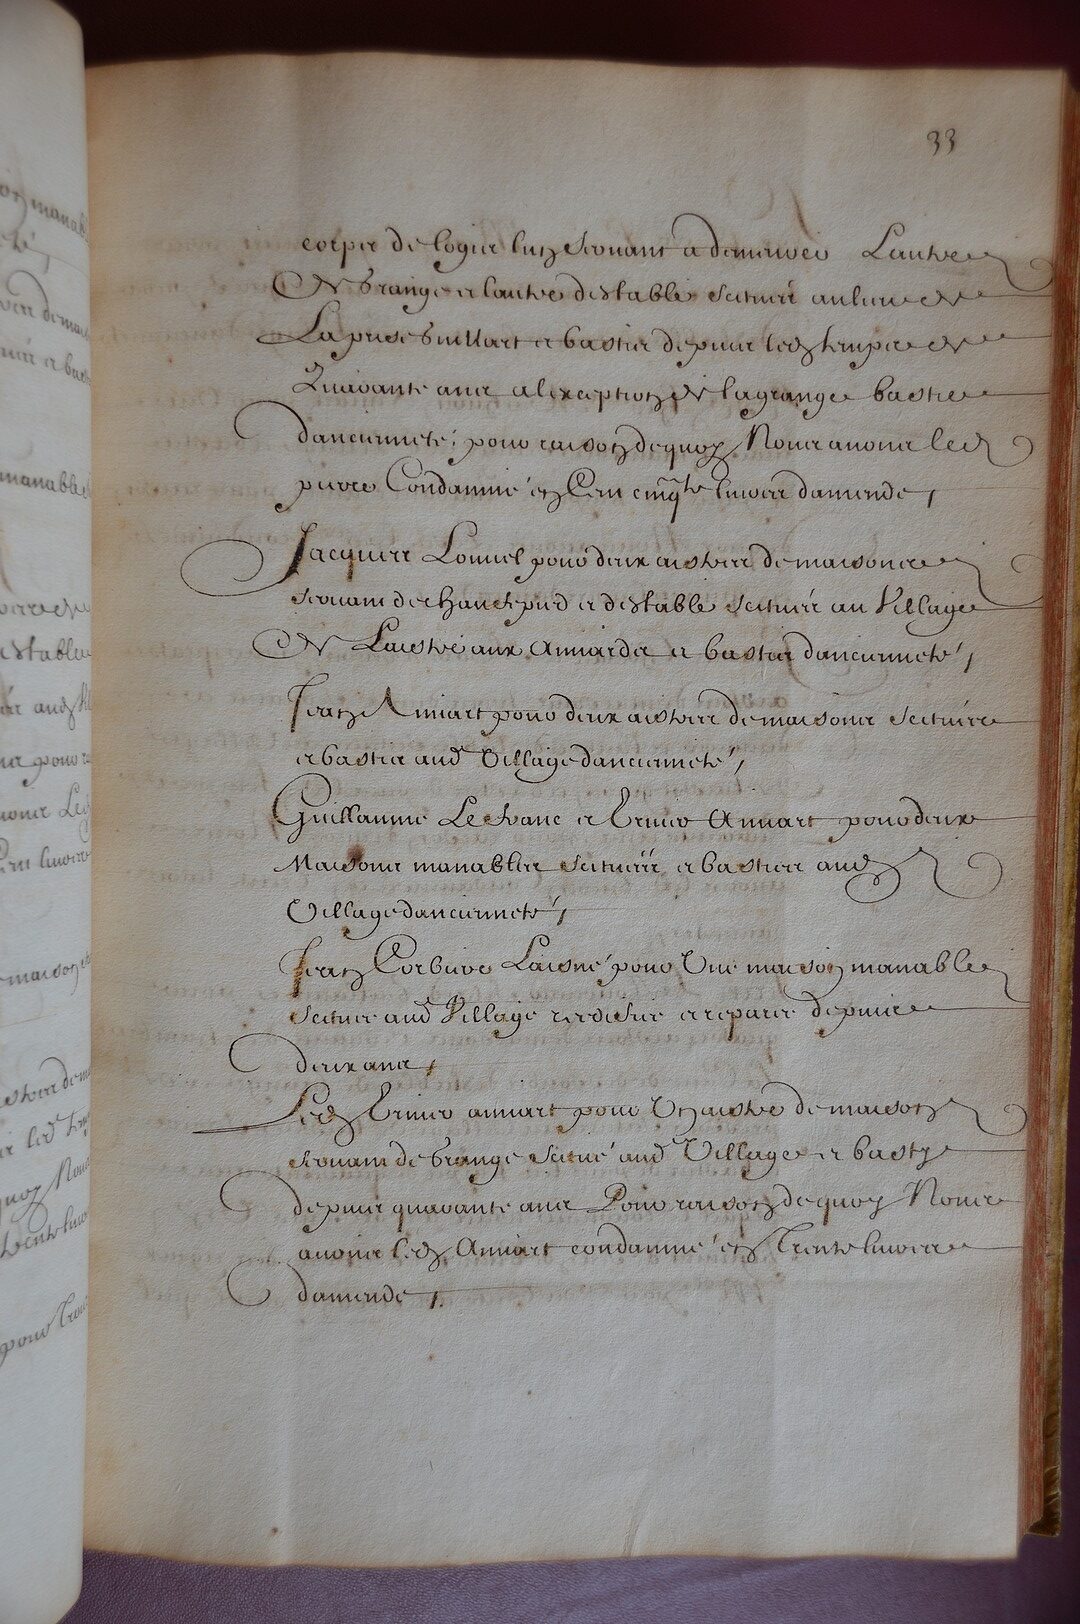 33
corps de logis lun servant a demeurer Lautre
de Grange et lautre destable scituéz au lieu de
La prise Guillart et bastis depuis led temps de
Quarante ans alexception de la grange bastie
dancienneté, pour raison dequoy Nous avons led
pierre Condamné en Cent cinqte livres damende,
Jacques Louuel pour deux aistres de maisons
servans de chauf pied et destable scituéz au Village
de Laistre aux Amiards et bastis dancienneté,
Jean Amiart pour deux aistres de maisons scituées
et bastis aud Village dancienneté,
Guillaume Le franc et Ernier Amiart pour deux
Maisons manables scituéés et basties aud
Village dancienneté,
Jean Corbiere Laisné pour Une maison manable
scituee aud Village reediffiee et reparee depuis
deux ans,
Led Ernier amiart pour Un aistre de maison
servant de Grange scitué aud Village et basty
depuis quarante ans Pour raison dequoy Nous
avons led Amiart condamné en Trente livres
damende,